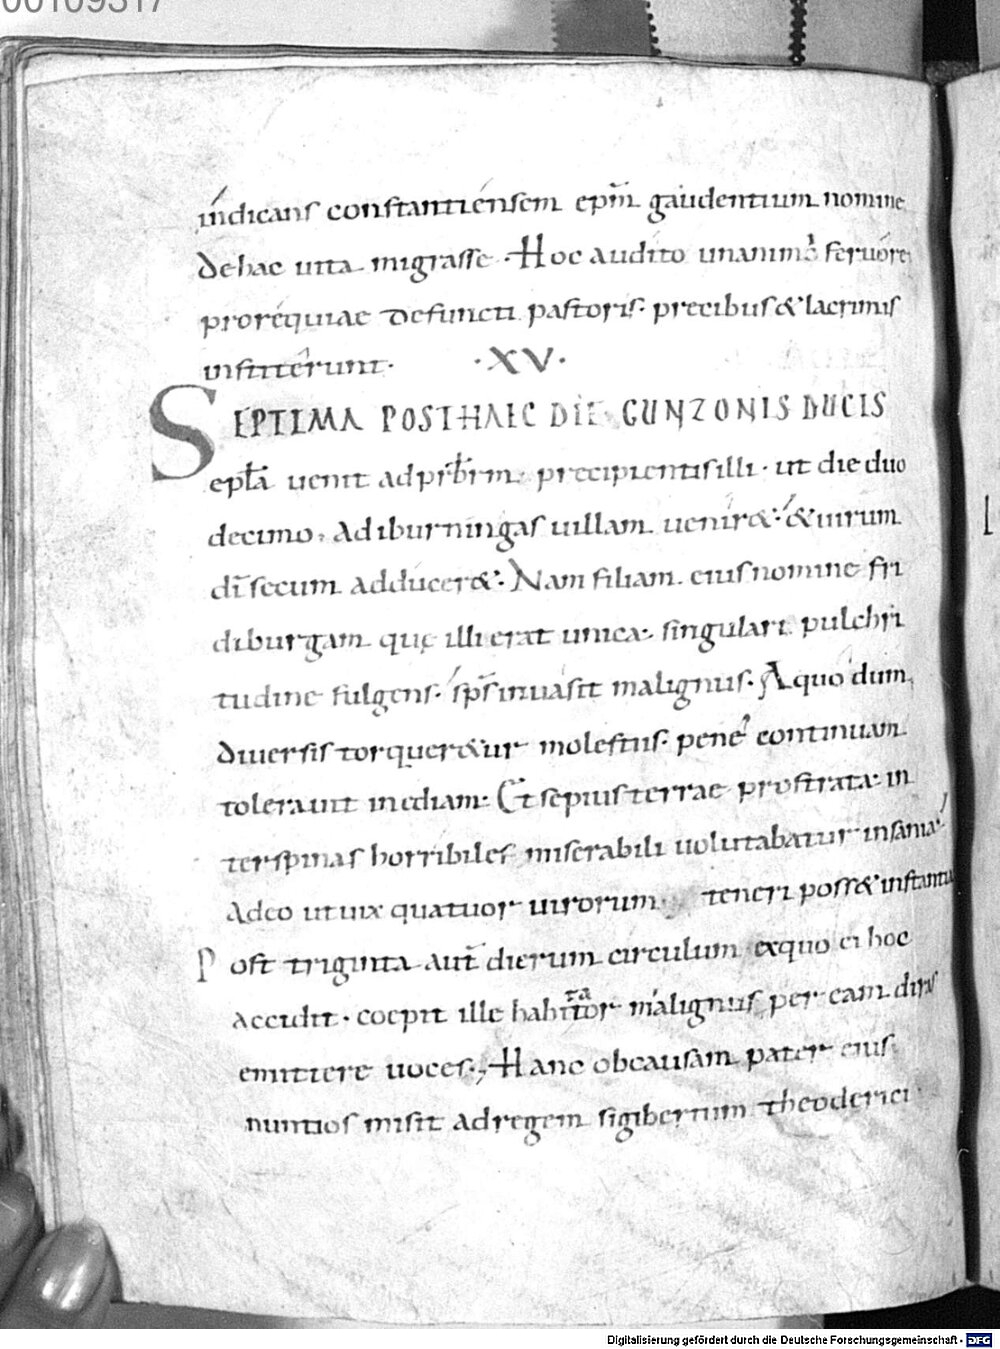 00109317
indicans constantiensem epm̄ gaudentium nomine
dehac uita migrasse. Hoc audito unanimo feruore
prorequiae defuncti pastoris. precibus& lacrimis
institerunt. ·XV·
SEPTIMA POSTHAEC DIE GUNZONIS DUCIS
eptā uenit adprb̄rm precipientisilli. ut die duo
decimo, adiburningas uillam uenir&. &uirum
dī secum adducer&. Nam filiam eiusnomine fri
diburgam quę illi erat unica. singulari pulchri
tudine fulgens. sps̄ inuasit malignus. Aquo dum
diuersis torquer&ur molestiis. pene continuam
tolerauit inediam. Et sepius terrae prostrata. in
terspinas horribiles miserabili uolutabatur insania.
Adeo utuix quatuor uirorum teneri poss& instantia
Post triginta aut̄ dierum circulum exquo ei hoc
accidit. coepit ille habitator malignus per eam diras
emittere uoces. Hanc obcausam pater eius
nuntios misit adregem sigibertum theoderici
Digitalisierung gefördert durch die Deutsche Forschungsgemeinschaft - DFG